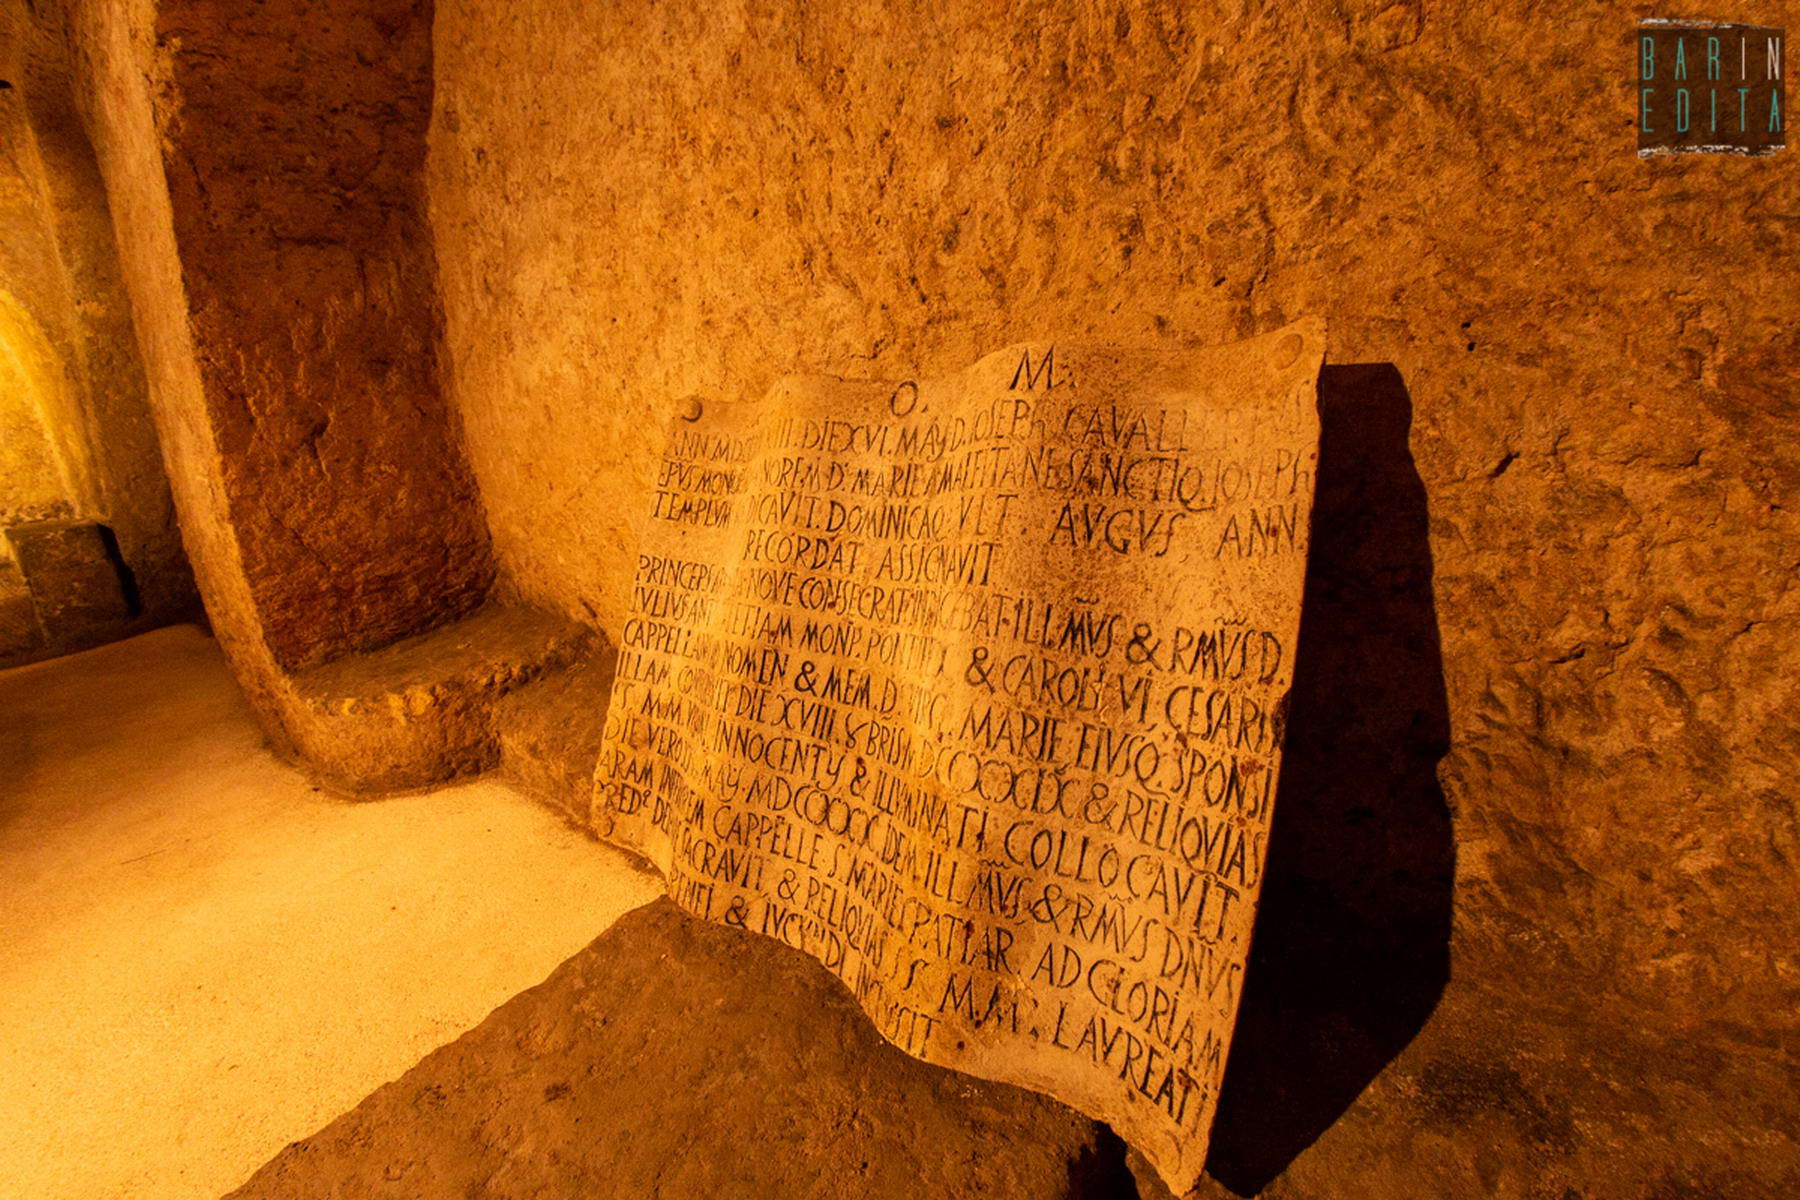 BARIN
EDITA
O. M.
ANN. M.D. III. DIE XVI. MAY D. IOSEPH CAVALLERIUS
EPVS MONO NOREM D. MARIE AMALFITANE SANCTIQ. IOSEPH
TEMPLVM DICAVIT. DOMINICAQ. VLT. AVGVS, ANN.
RECORDAT ASSIGNAVIT
PRINCEPS NOVE CONSECRAT INDICEBAT. ILLMVS & RMVS D.
IVLIVS ANT ETIAM MONP. PONTIFX & CAROLI VI. CESARIS
CAPPELLAM NOMEN & MEM. D. MARIE EIVSQ. SPONSI
ILLAM DIE XVIII. 8BRIS MDCCXXXIX & RELIQVIAS
SS. M.M. INNOCENTY & ILLVMINATI COLLOCAVIT.
DIE VERO MAY. MDCCXXXX IDEM ILLMVS & RMVS DNVS
ARAM CAPPELLE S. MARIE PATRIAR. AD GLORIAM
PRED. SACRAVIT, & RELIQVIAS SS. M.M. LAVREAT
IRENEI, & IVCVNDI INCLVSIT